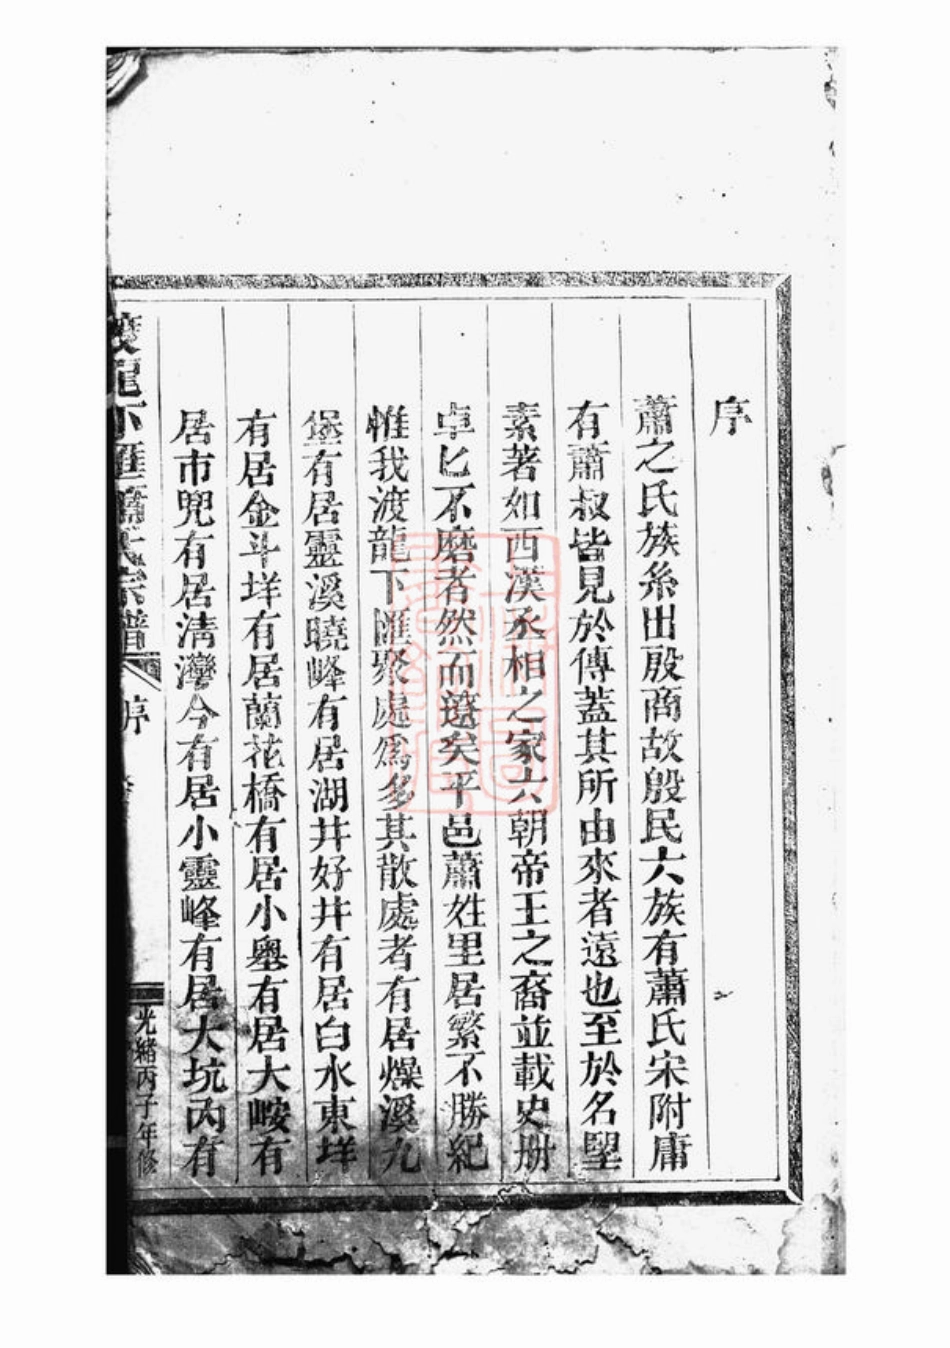 序
蕭之氏族系出殷商故殷民六族有蕭氏宋附庸
有蕭叔皆見於傳蓋其所由來者遠也至於名壂
素著如西漢丞相之家六朝帝王之裔並載史册
卓匕不磨者然而邈矣平邑蕭姓里居繁不勝紀
惟我渡龍下匯聚處爲多其散處者有居燥溪九
堡有居靈溪曉峰有居湖井好井有居白水東垟
有居金斗垟有居蘭花橋有居小墺有居大峖有
居市兜有居清灣今有居小靈峰有居大坑內有
渡龍下匯蕭氏宗譜
序
光緒丙子年修